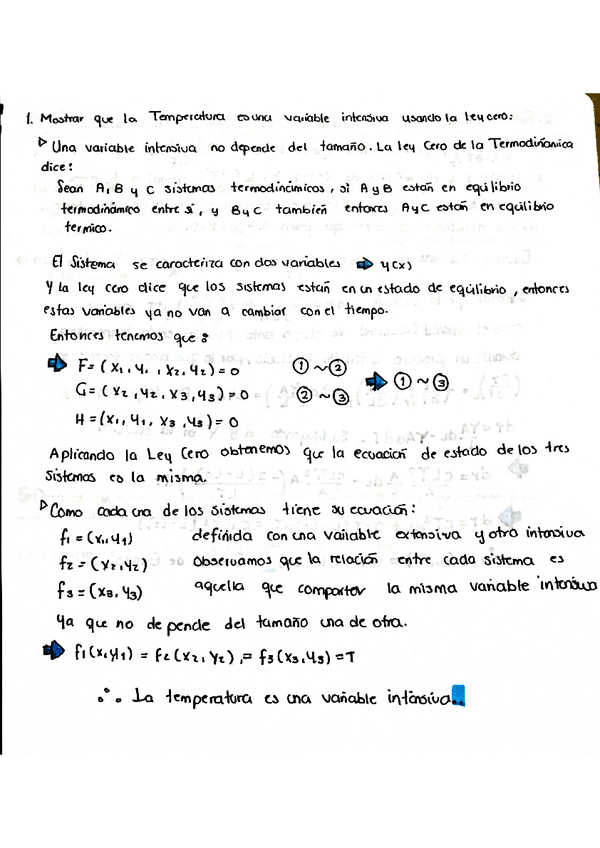 1. Mostrar que la Temperatura es una variable intensiva usando la ley cero:
▷ Una variable intensiva no depende del tamaño. La ley Cero de la Termodinámica
dice:
Sean A, B y C sistemas termodinámicos, si A y B están en equilibrio
termodinámico entre sí, y B y C también entonces A y C están en equilibrio
termico.
El Sistema se caracteriza con dos variables ⇒ y(x)
Y la ley cero dice que los sistemas están en un estado de equilibrio, entonces
estas variables ya no van a cambiar con el tiempo.
Entonces tenemos que:
⇒ F=(x₁,y₁,x₂,y₂)=0 ① ~ ②
G=(x₂,y₂,x₃,y₃)=0 ② ~ ③ ⇒ ① ~ ③
H=(x₁,y₁,x₃,y₃)=0
Aplicando la Ley Cero obtenemos que la ecuación de estado de los tres
Sistemas es la misma.
▷ Como cada una de los sistemas tiene su ecuación:
f₁=(x₁,y₁) definida con una variable extensiva y otra intensiva
f₂=(x₂,y₂) Observamos que la relación entre cada sistema es
f₃=(x₃,y₃) aquella que comparten la misma variable intensiva
Ya que no depende del tamaño una de otra.
⇒ f₁(x₁,y₁) = f₂(x₂,y₂),= f₃(x₃,y₃)=T
∴ La temperatura es una variable intensiva.